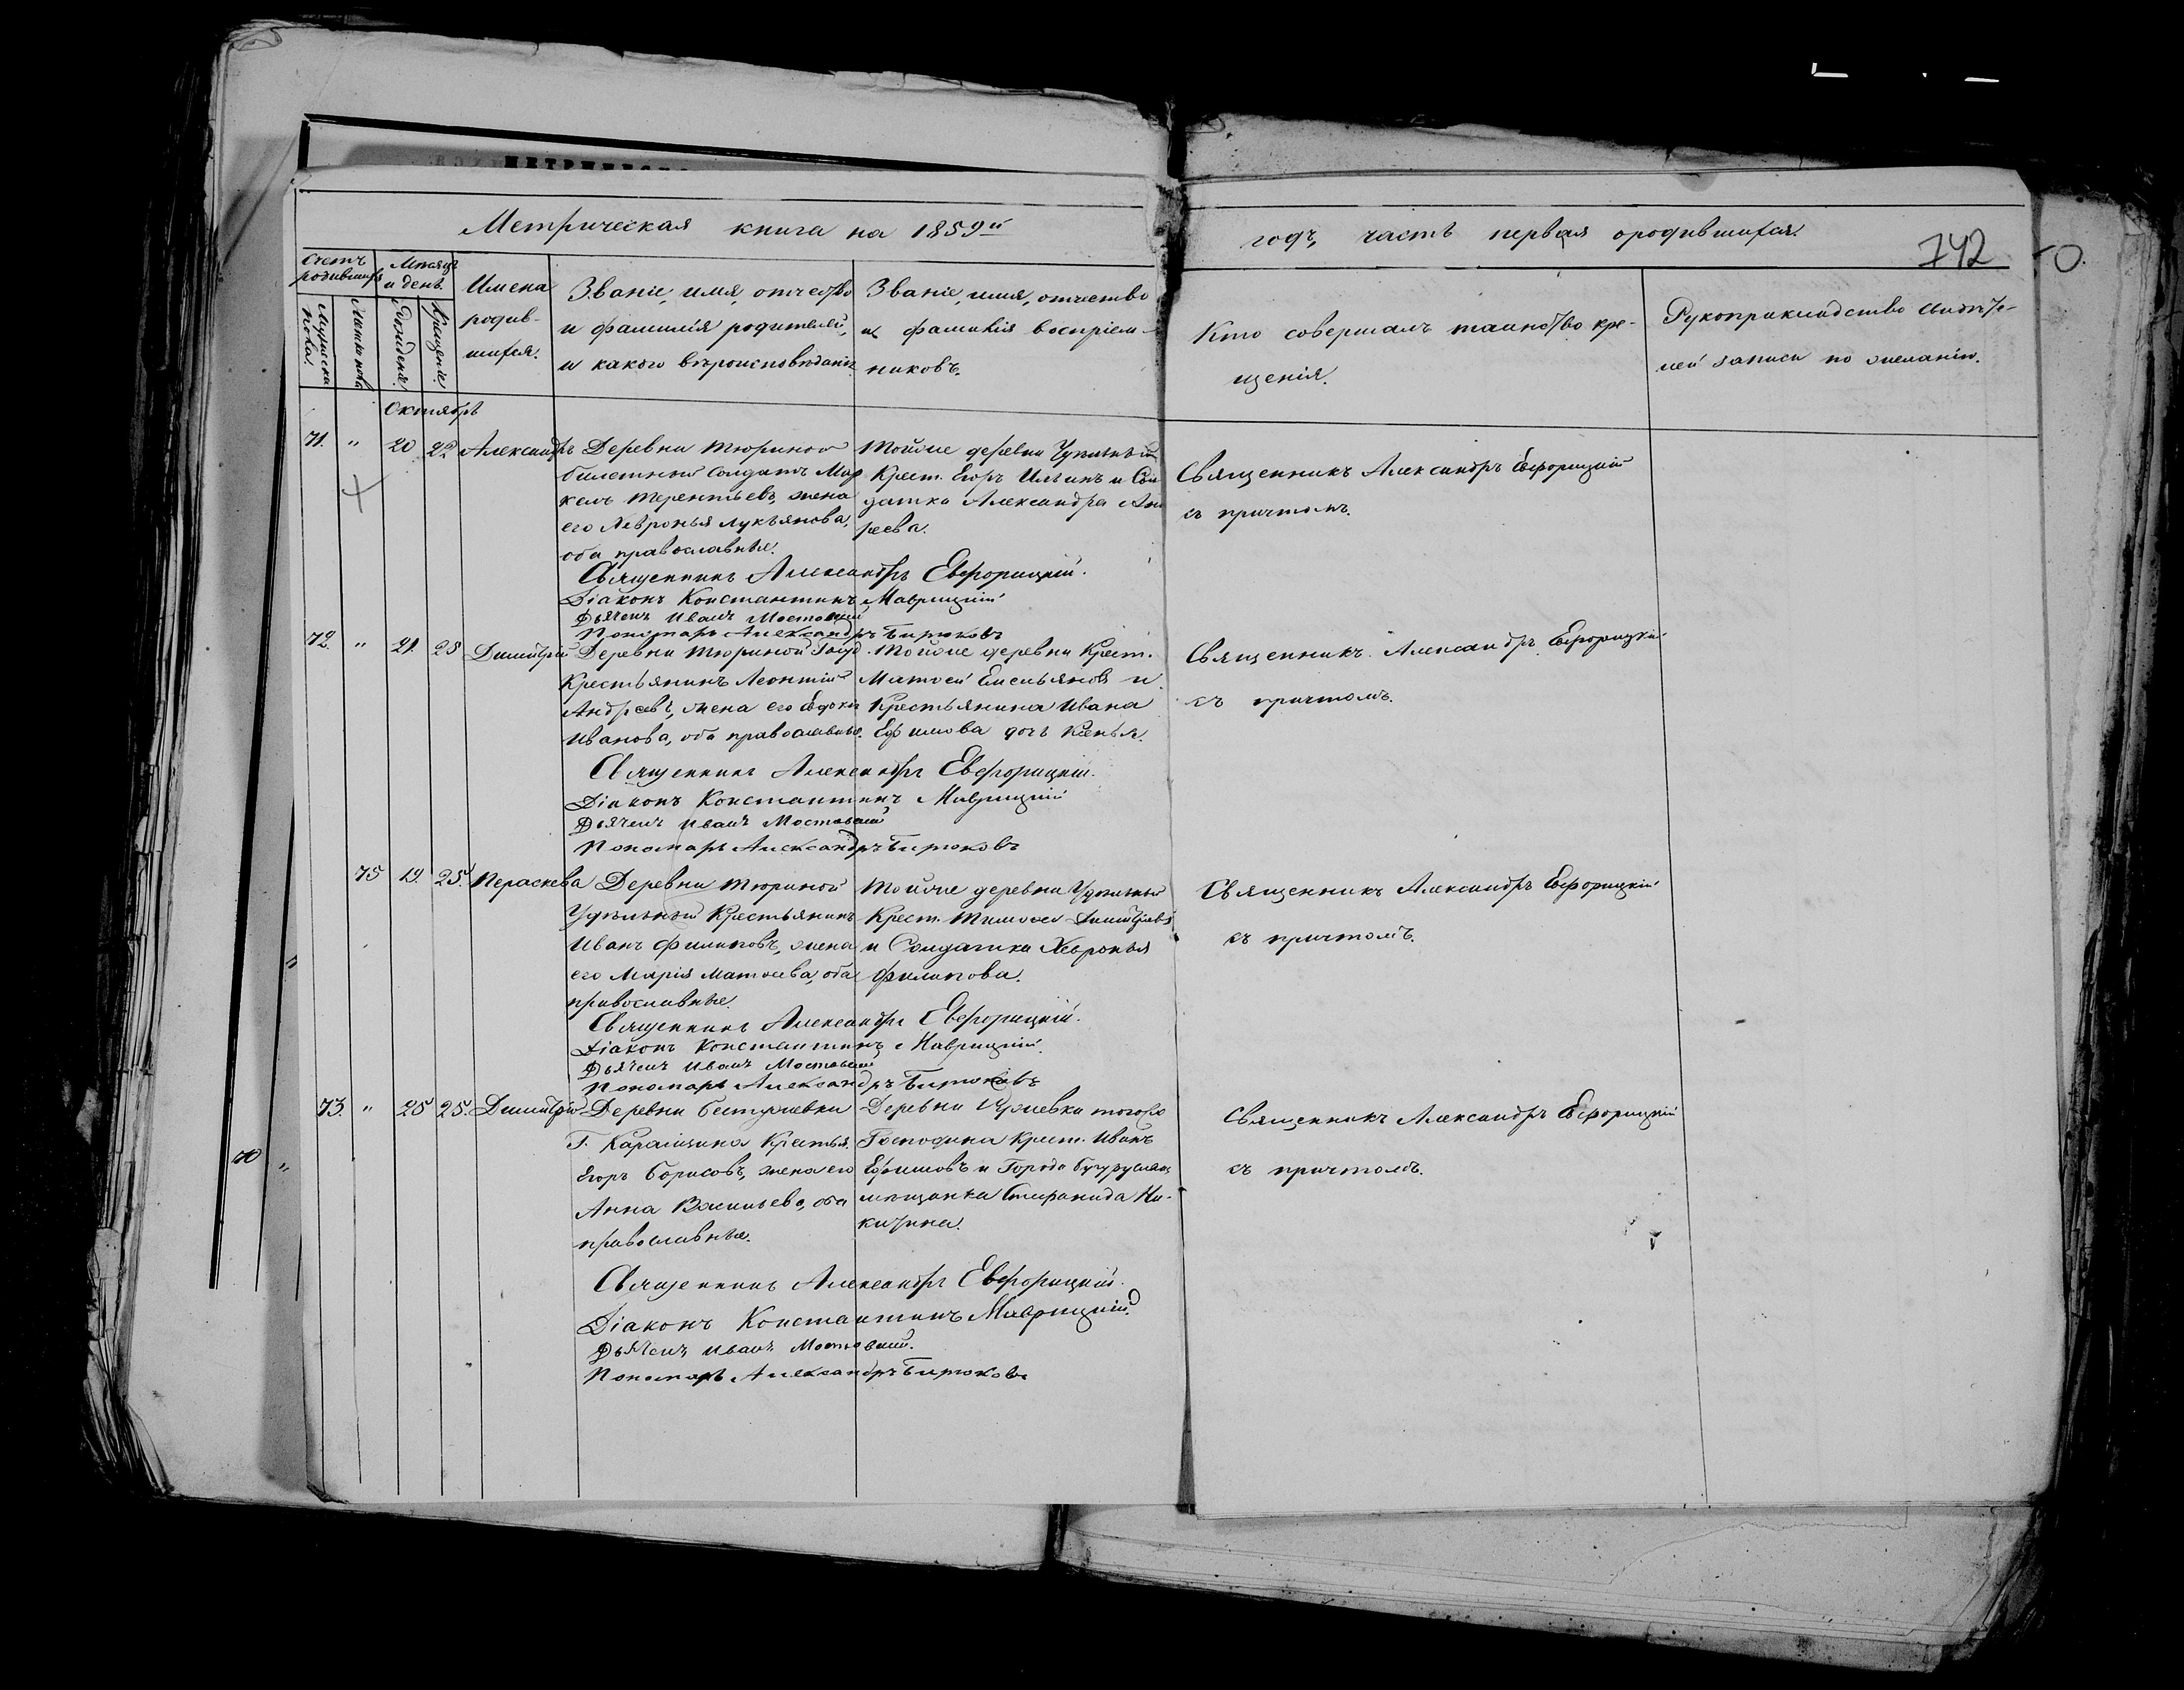 Метрическая книга на 1859й
годъ, часть первая о родившихся.
742
Счетъ родившихся
Мѣсяцъ и день.
Мужеска пола.
Женска пола
Рожденія.
Крещенія.
Имена
родив-
шихся.
Званіе, имя, отчество
и фамилія родителей,
и какого вѣроисповѣданія.
Званіе, имя, отчество
и фамилія воспріем-
никовъ.
Кто совершалъ таинство кре-
щенія.
Рукоприкладство свидѣте-
лей записи по желанію.
Октябрь
71. " 20 22 Александръ
Деревни Тюриной
билетный солдатъ Мар
келъ Терентьевъ, жена
его Хевронья Лукьянова,
оба православные.
Тойже деревни Удѣльный
Крест. Егоръ Ильинъ и Сол
датка Александра Анд
реева.
Священникъ Александръ Евфорицкій
съ причтомъ.
Священникъ Александръ Евфорицкій.
Діаконъ Константинъ Маврицкій
Дьячекъ Иванъ Мостовскій
Пономарь Александръ Бирюковъ
72. " 21. 25 Димитрій
Деревни Тюриной Госуд.
Крестьянинъ Леонтій
Андреевъ, жена его Евдокія
Иванова, оба православные.
Тойже деревни Крест.
Матвей Емельяновъ и
Крестьянина Ивана
Ефимова дочь Ксенья.
Священникъ Александръ Евфорицкій
съ причтомъ.
Священникъ Александръ Евфорицкій.
Діаконъ Константинъ Маврицкій
Дьячекъ Иванъ Мостовскій
Пономарь Александръ Бирюковъ
75 19. 25. Параскева
Деревни Тюриной
Удѣльный Крестьянинъ
Иванъ Филиповъ, жена
его Марія Матвеева, оба
православные.
Тойже деревни Удѣльный
Крест. Тимофей Димитріевъ
и Солдатка Хевронья
Филипова.
Священникъ Александръ Евфорицкій
съ причтомъ.
Священникъ Александръ Евфорицкій.
Діаконъ Константинъ Маврицкій.
Дьячекъ Иванъ Мостовскій
Пономарь Александръ Бирюковъ
73. " 25 25. Димитрій
Деревни Бестужевки
Г. Карамзина Крестья.
Егоръ Борисовъ, жена его
Анна Васильева, оба
православные.
Деревни тогоже
Господина Крест. Иванъ
Ефимовъ и Города Бугуруслана
мѣщанка Степанида Ни-
китина.
Священникъ Александръ Евфорицкій
съ причтомъ.
Священникъ Александръ Евфорицкій.
Діаконъ Константинъ Маврицкій.
Дьячекъ Иванъ Мостовскій.
Пономарь Александръ Бирюковъ
70 "